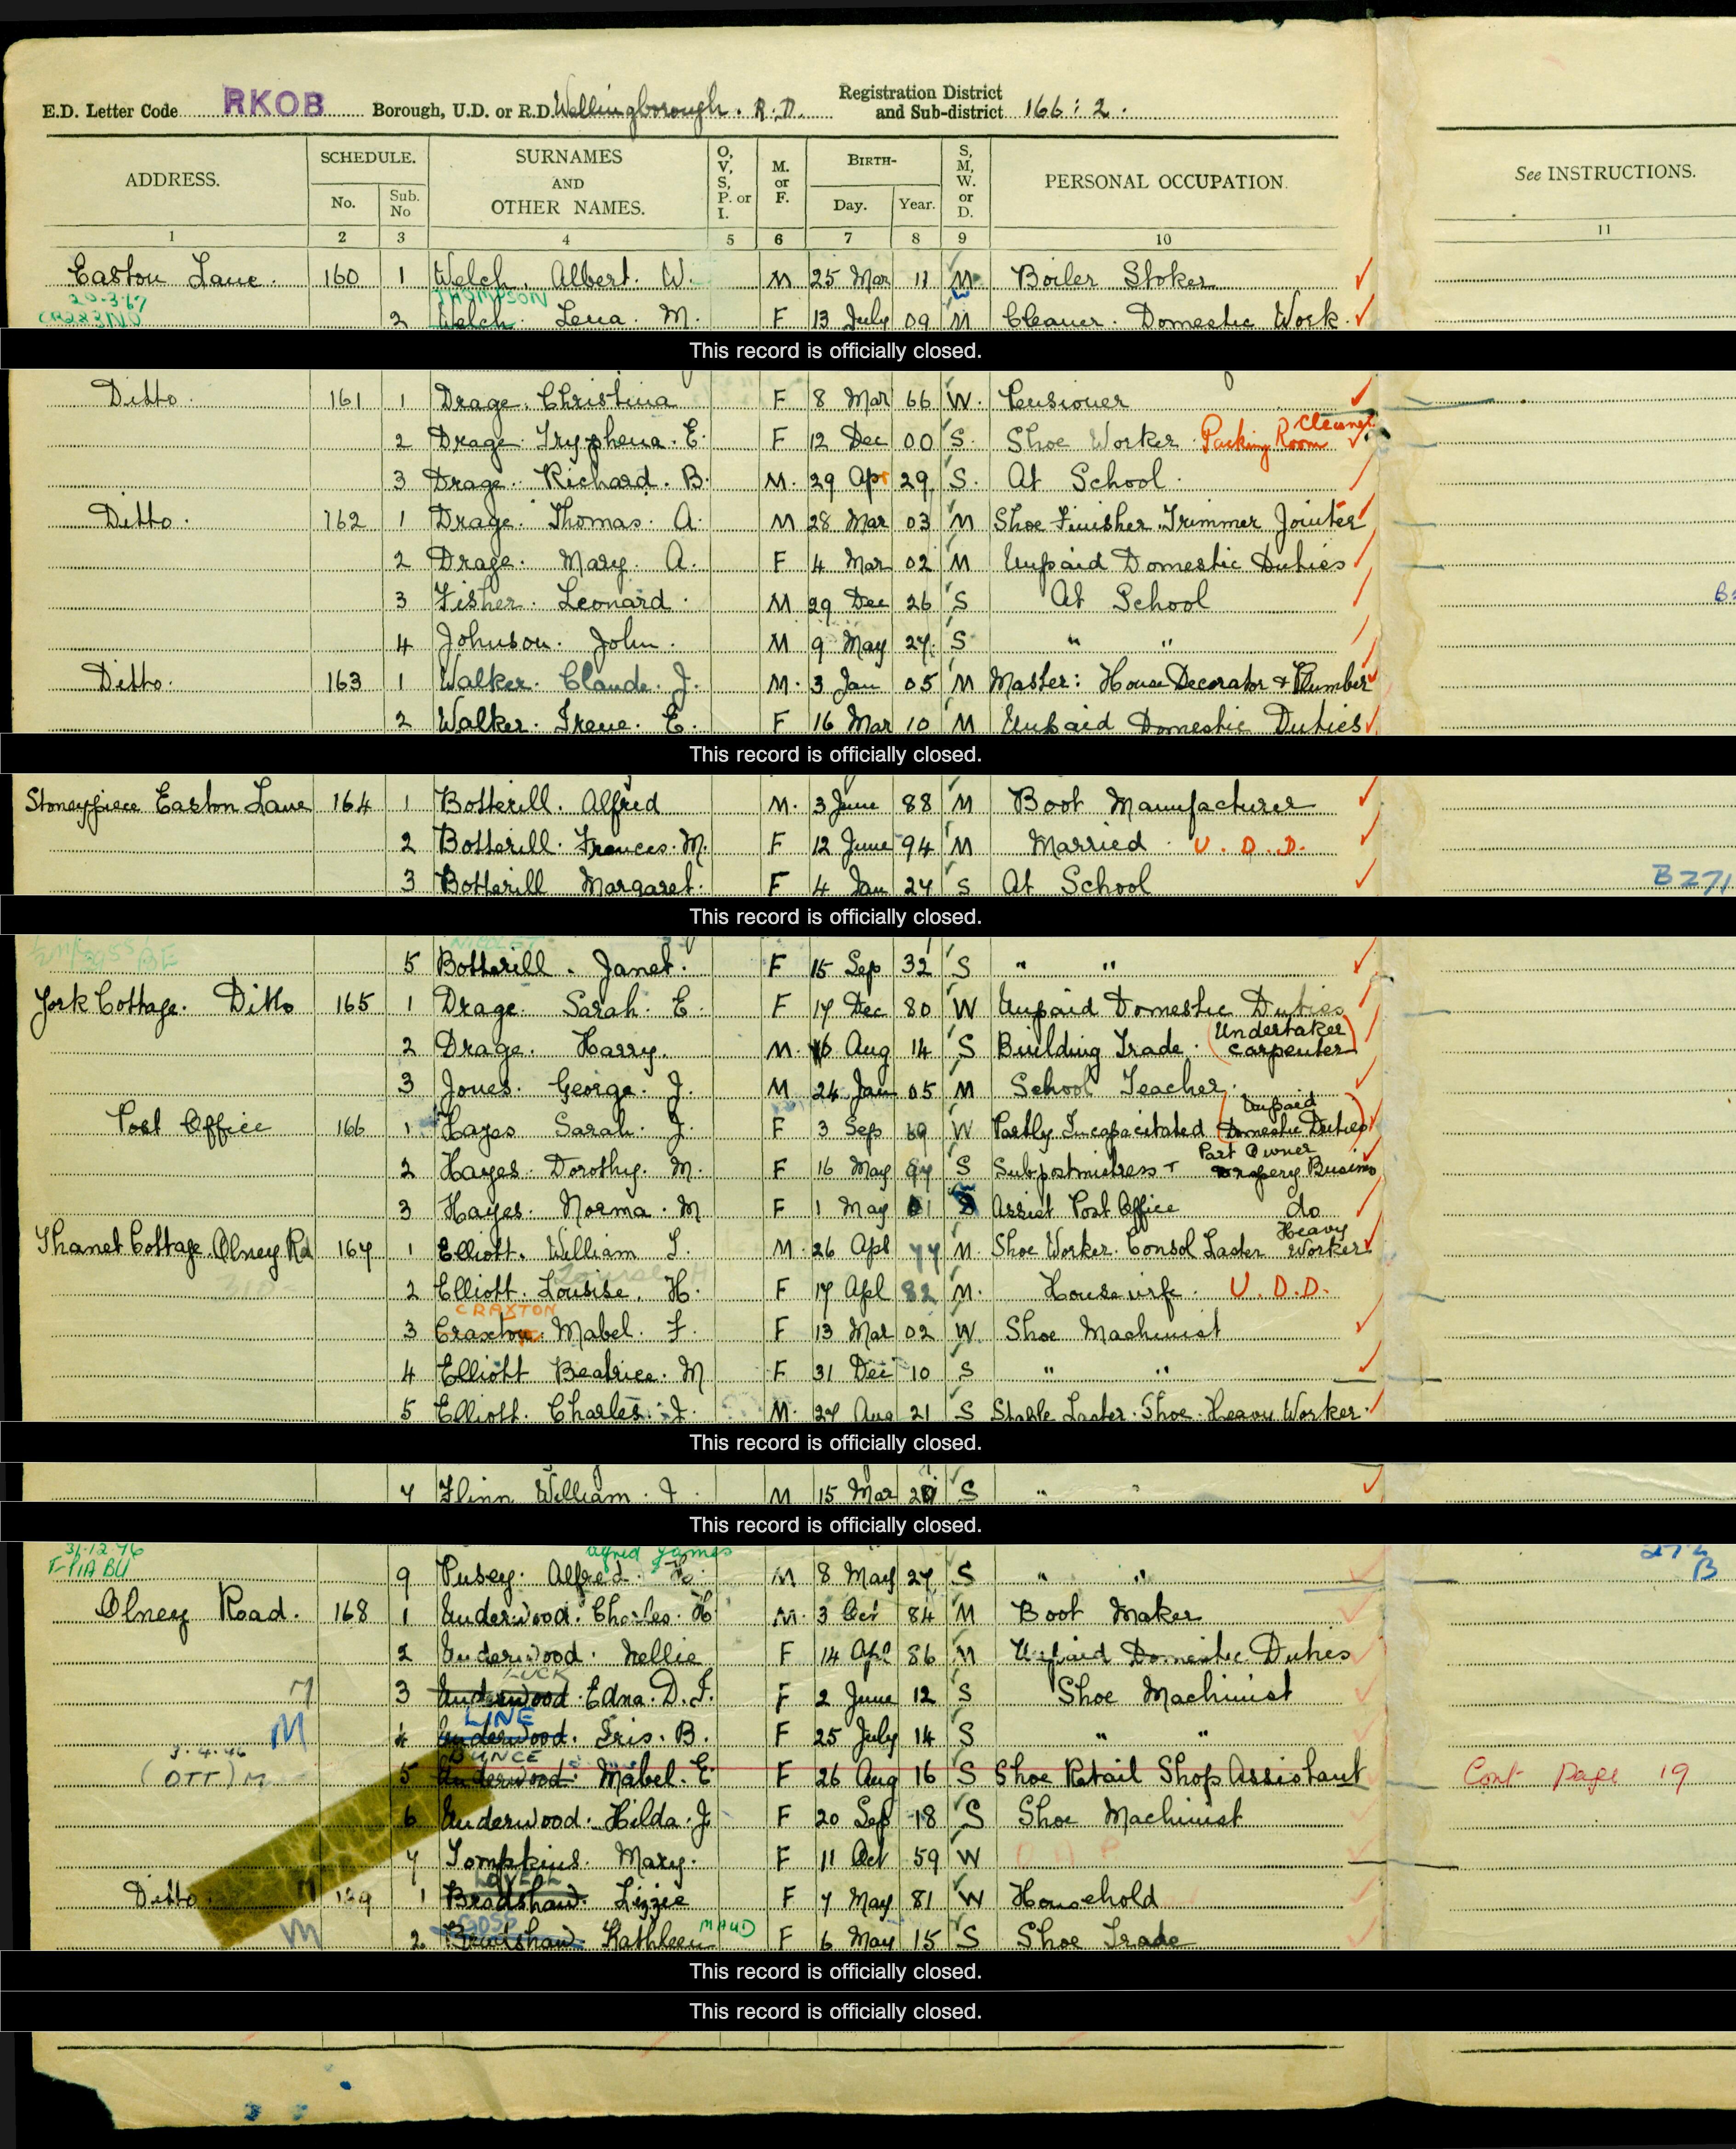 E.D. Letter Code RKOB Borough, U.D. or R.D. Wellingborough. R.D. Registration District and Sub-district 166:2.
ADDRESS. SCHEDULE. No. Sub. No SURNAMES AND OTHER NAMES. O, V, S, P. or I. M. or F. BIRTH- Day. Year. S, M, W. or D. PERSONAL OCCUPATION. See INSTRUCTIONS.
1 2 3 4 5 6 7 8 9 10 11
Easton Lane. 160 1 Welch. Albert. W. M 25 Mar 11 M Boiler Stoker
20-3-67 THOMPSON
2 Welch. Lena. M. F 13 July 09 M Cleaner. Domestic Work.
This record is officially closed.
Ditto. 161 1 Drage. Christina F 8 Mar 66 W. Pensioner
2 Drage. Tryphena. E. F 12 Dec 00 S. Shoe Worker. Packing Room Cleaner
3 Drage. Richard. B. M. 29 Apr 29 S. At School.
Ditto. 162 1 Drage. Thomas. A. M 28 Mar 03 M Shoe Finisher. Trimmer Jointer
2 Drage. Mary. A. F 4 Mar 02 M Unpaid Domestic Duties
3 Fisher. Leonard. M 29 Dec 26 S At School
4 Johnson. John. M 9 May 27. S " "
Ditto. 163 1 Walker. Claude. J. M. 3 Jan 05 M Master: House Decorator & Plumber
2 Walker. Irene. E. F 16 Mar 10 M Unpaid Domestic Duties
This record is officially closed.
Stoneypiece Easton Lane 164 1 Botterill. Alfred M. 3 June 88 M Boot Manufacturer
2 Botterill. Frances. M. F 12 June 94 M Married. U.D.D.
3 Botterill Margaret. F 4 Jan 27 S At School B271
This record is officially closed.
NICOLET
5 Botterill. Janet. F 15 Sep 32 S " "
York Cottage. Ditto 165 1 Drage. Sarah. E. F 17 Dec 80 W Unpaid Domestic Duties
2 Drage. Harry. M. 16 Aug 14 S Building Trade. (Undertaker Carpenter)
3 Jones. George. J. M 24 Jan 05 M School Teacher.
Post Office 166 1 Hayes Sarah. J. F 3 Sep 69 W Partly Incapacitated (Unpaid Domestic Duties)
2 Hayes. Dorothy. M. F 16 May 97 S Subpostmistress + Part Owner Drapery Business
3 Hayes. Norma. M F 1 May 01 S Assist Post Office do
Thanet Cottage. Olney Rd 167 1 Elliott. William T. M. 26 Apl 77 M. Shoe Worker. Consol Laster Heavy Worker
Louise H
2 Elliott. Louisise. H. F 17 Apl 82 M. Housewife. U.D.D.
CRAXTON
3 Craxton. Mabel. F. F 13 Mar 02 W. Shoe Machinist
4 Elliott Beatrice. M F 31 Dec 10 S " "
5 Elliott. Charles. J. M. 27 Aug 21 S Staple Laster. Shoe. Heavy Worker.
This record is officially closed.
7 Flinn William. J. M 15 Mar S " "
This record is officially closed.
31-12-46 Alfred James 272 B
9 Pusey. Alfred. M 8 May 27 S " "
Olney Road. 168 1 Underwood. Charles. H. M. 3 Oct 84 M Boot Maker
2 Underwood. Nellie F 14 Apl 86 M Unpaid Domestic Duties
LUCK
3 Underwood. Edna. D. F. F 2 June 12 S Shoe Machinist
LINE
M 4 Underwood. Iris. B. F 25 July 14 S " "
3.4.46 BUNCE
(OTT) M 5 Underwood. Mabel. E F 26 Aug 16 S Shoe Retail Shop Assistant Cont Page 19
6 Underwood. Hilda. J. F 20 Sep 18 S Shoe Machinist
7 Tompkins. Mary. F 11 Oct 59 W O A P
LOVELL
Ditto. 169 1 Bradshaw. Lizzie F 7 May 81 W Household
GOSS
M 2. Bradshaw. Kathleen MAUD F 6 May 15 S Shoe Trade
This record is officially closed.
This record is officially closed.